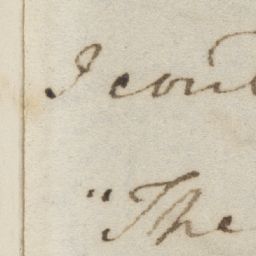 I coul
"The